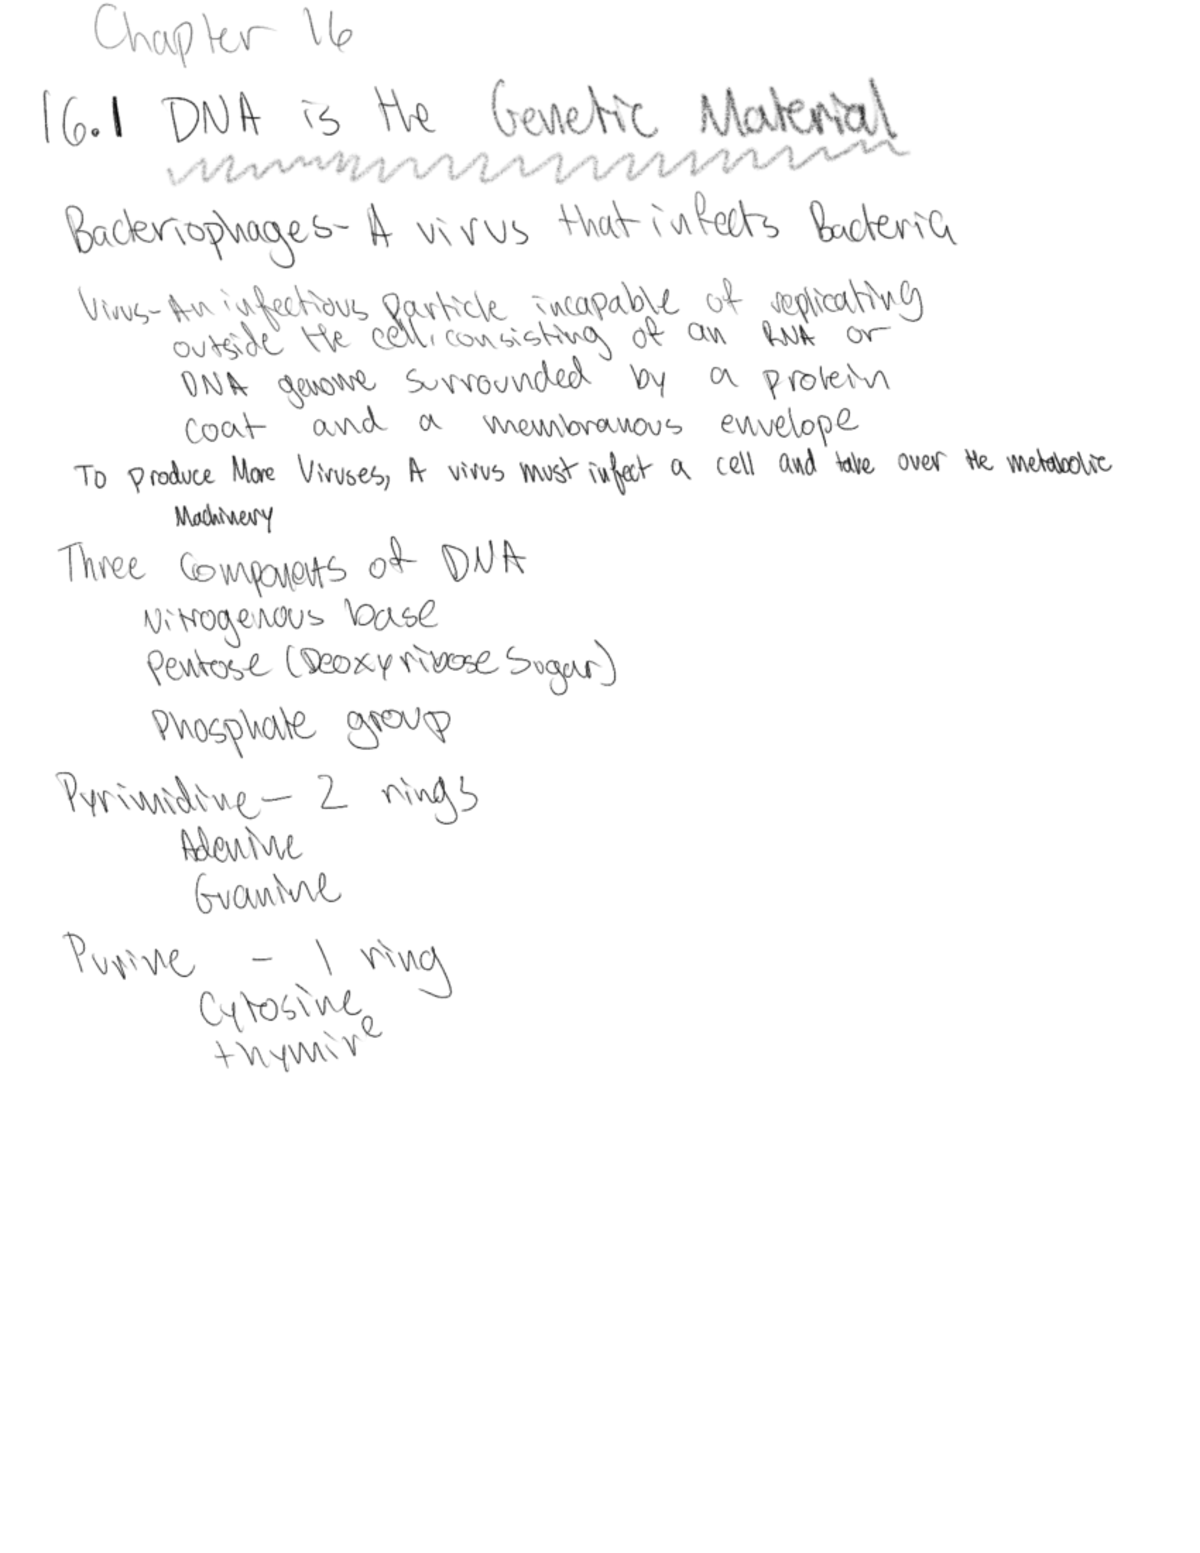 Chapter 16
16.1 DNA is the Genetic Material
Bacteriophages- A virus that infects Bacteria
Virus- An infectious particle incapable of replicating
outside the cell, consisting of an RNA or
DNA genome surrounded by a protein
coat and a membranous envelope
To produce More Viruses, A virus must infect a cell and take over the metabolic
Machinery
Three Components of DNA
Nitrogenous base
Pentose (Deoxyribose Sugar)
Phosphate group
Pyrimidine- 2 rings
Adenine
Guanine
Purine - 1 ring
Cytosine
thymine